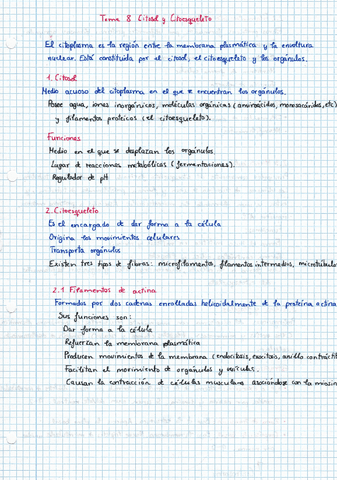 Tema 8 Citosol y Citoesqueleto
El citoplasma es la región entre la membrana plasmática y la envoltura
nuclear. Está constituida por el citosol, el citoesqueleto y los orgánulos.
1. Citosol
Medio acuoso del citoplasma en el que se encuentran los orgánulos.
Posee agua, iones inorgánicos, moléculas orgánicas (aminoácidos, monosacáridos, etc)
y filamentos proteicos (el citoesqueleto).
Funciones
Medio en el que se desplazan los orgánulos
Lugar de reacciones metabólicas (fermentaciones).
Regulador de pH
2. Citoesqueleto
Es el encargado de dar forma a la célula
Origina los movimientos celulares
Transporta orgánulos
Existen tres tipos de fibras: microfilamentos, filamentos intermedios, microtúbulo
2.1 Filamentos de actina
Formados por dos cadenas enrolladas helicoidalmente de la proteína actina
Sus funciones son:
Dar forma a la célula
Refuerzan la membrana plasmática
Producen movimientos de la membrana (endocitosis, exocitosis, anillo contráctil
Facilitan el movimiento de orgánulos y vesículas.
Causan la contracción de células musculares asociándose con la miosin